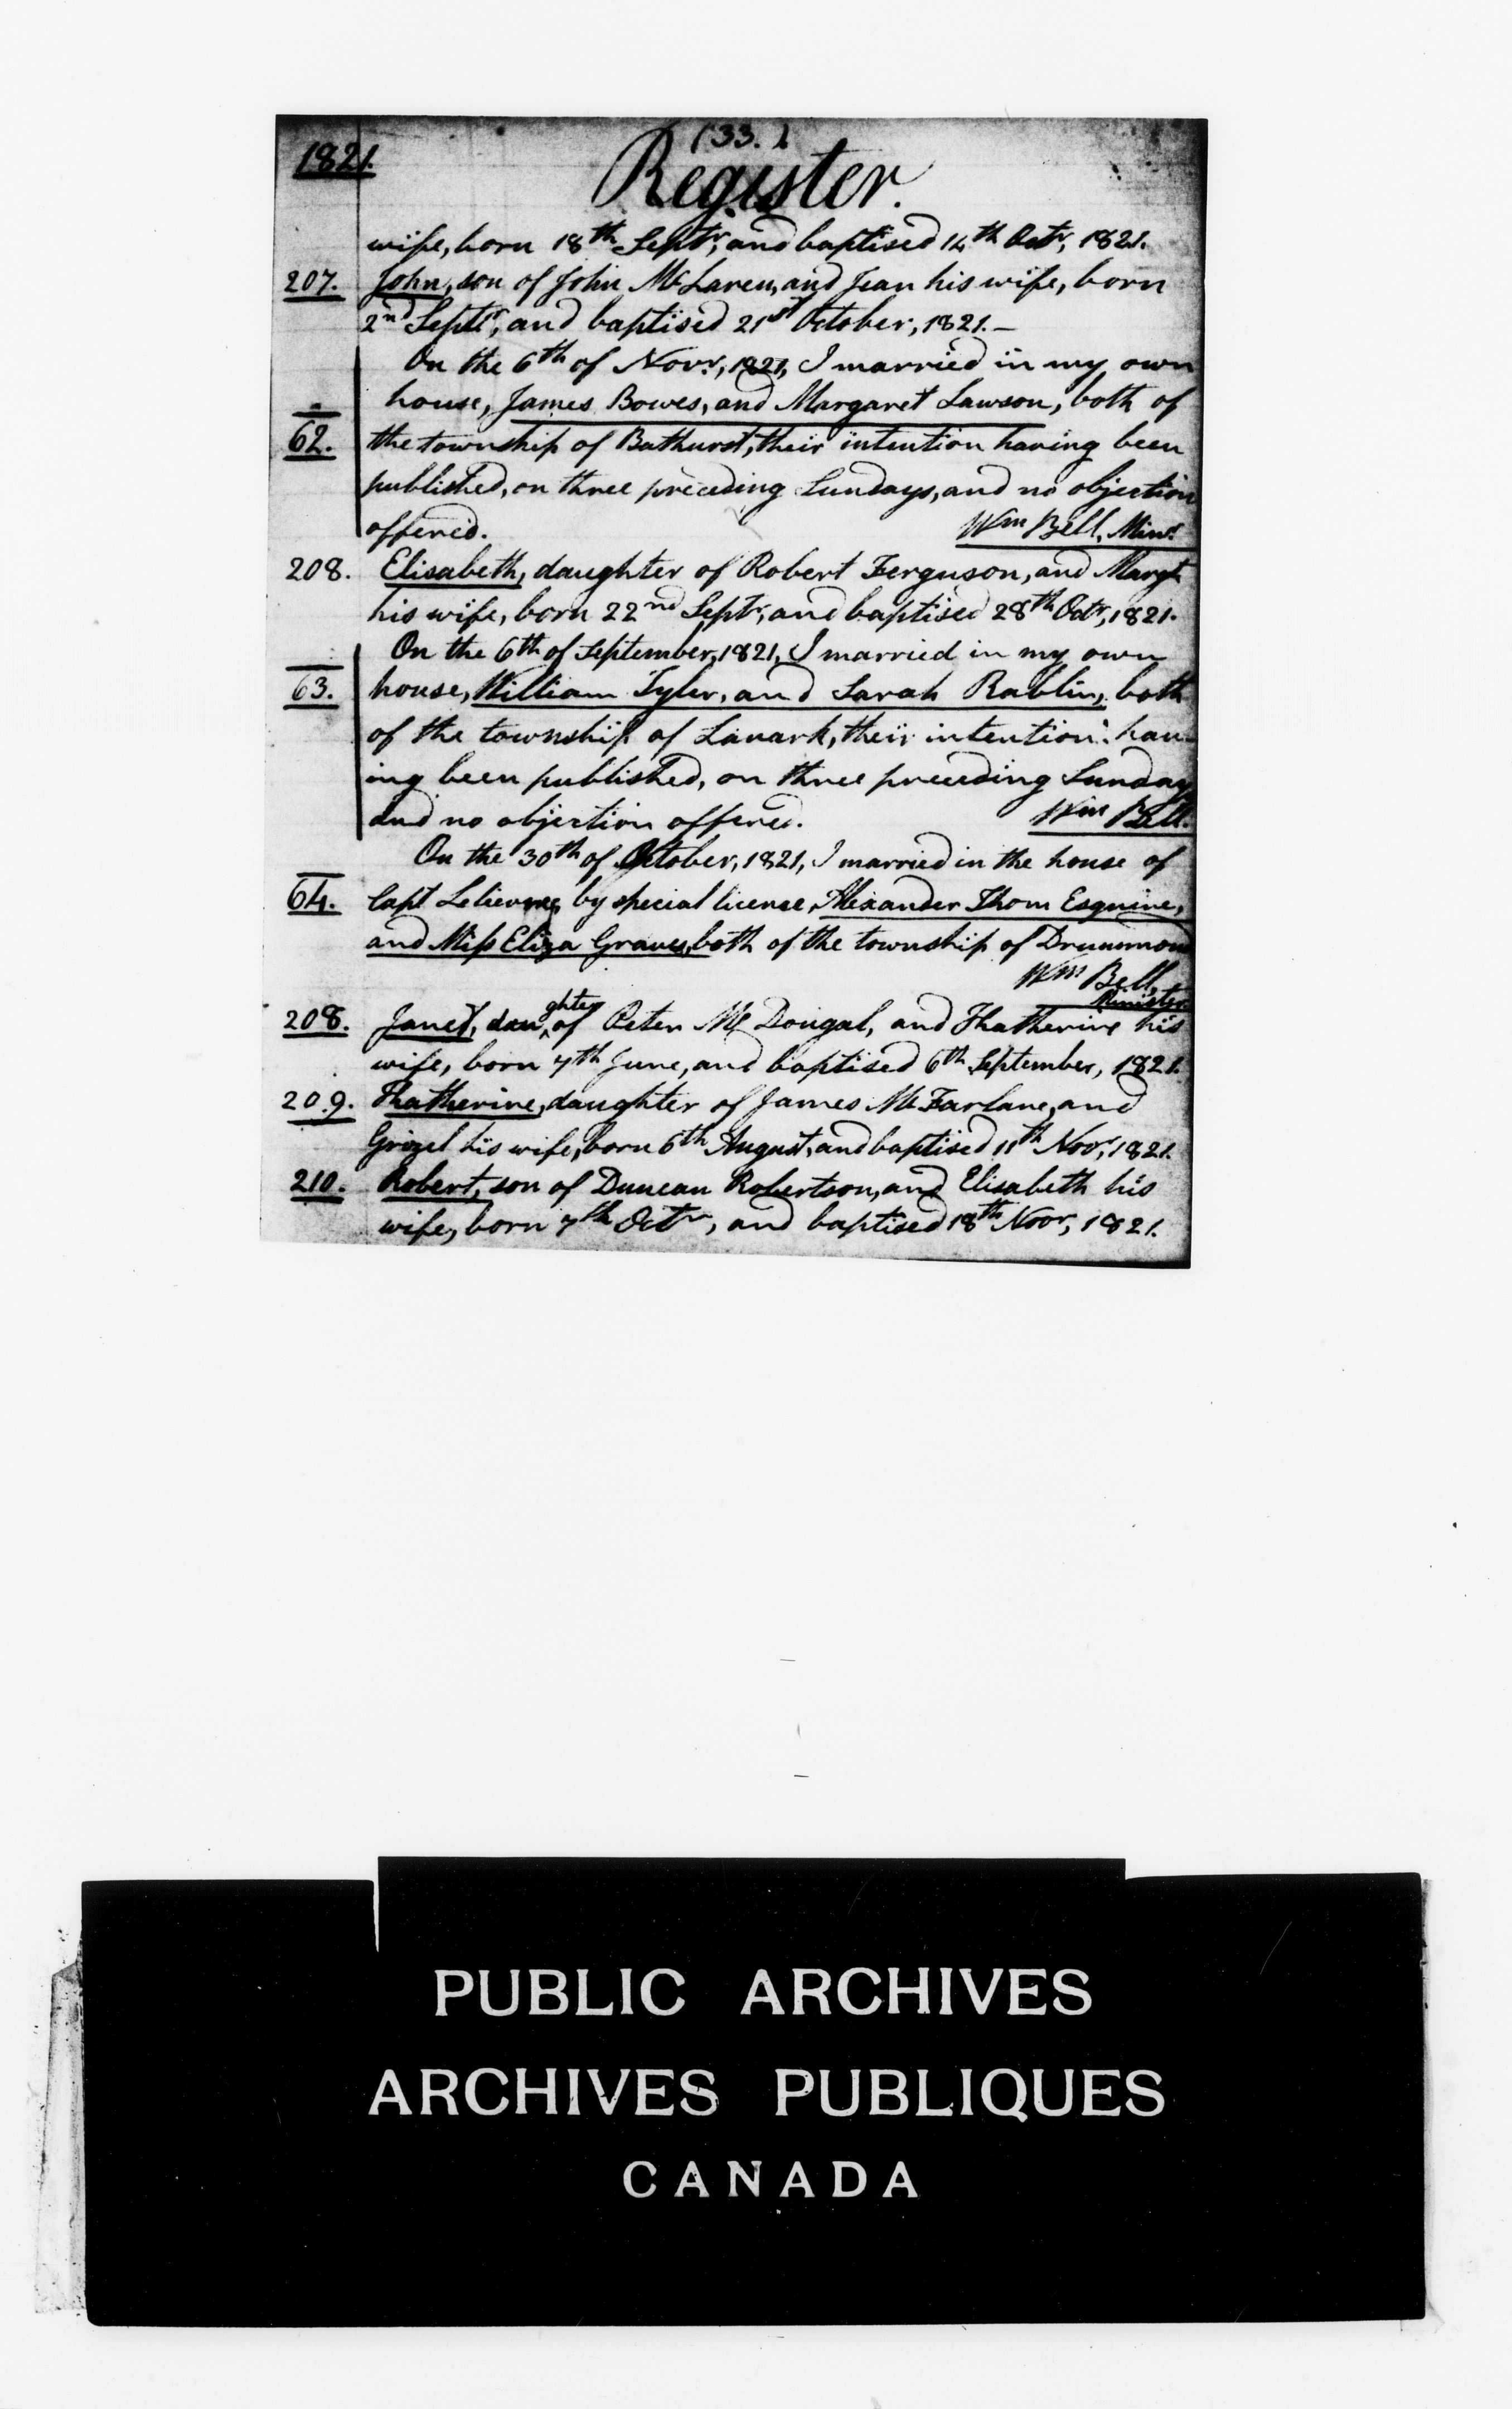 (33.)
1821.
Register.
wife, born 18th Septr, and baptised 14th Octr, 1821.
207. John, son of John McLaren, and Jean his wife, born
2nd Septr, and baptised 21st October, 1821.—
On the 6th of Novr, 1821, I married in my own
house, James Bowes, and Margaret Lawson, both of
62. the township of Bathurst, their intention having been
published, on three preceding Sundays, and no objection
offered. Wm Bell, Minr
208. Elisabeth, daughter of Robert Ferguson, and Margt
his wife, born 22nd Septr, and baptised 28th Octr, 1821.
On the 6th of September, 1821, I married in my own
63. house, William Tyler, and Sarah Rablin, both
of the township of Lanark, their intention hav-
ing been published, on three preceding Sunday
and no objection offered. Wm Bell.
On the 30th of October, 1821, I married in the house of
64. Capt Lelievre, by special license, Alexander Thom Esquire,
and Miss Eliza Graves, both of the township of Drummond
Wm Bell,
Minister
208. Janet, daughter of Peter McDougal, and Khatherine his
wife, born 7th June, and baptised 6th September, 1821.
209. Khatherine, daughter of James McFarlane, and
Grizel his wife, born 6th August, and baptised 11th Novr, 1821.
210. Robert, son of Duncan Robertson, and Elisabeth his
wife, born 7th Octr, and baptised 18th Novr, 1821.
PUBLIC ARCHIVES
ARCHIVES PUBLIQUES
CANADA